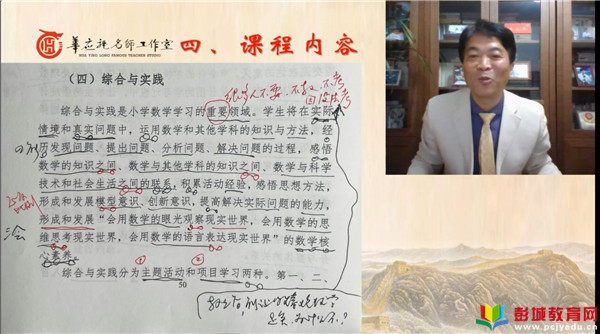 華应龍名师工作室
HUA YING LONG FAMOUS TEACHER STUDIO
四、课程内容
（四）综合与实践
综合与实践是小学数学学习的重要领域。学生将在实际
情境和真实问题中，运用数学和其他学科的知识与方法，经
历发现问题、提出问题、分析问题、解决问题的过程，感悟
数学的知识之间、数学与其他学科的知识之间、数学与科学
技术和社会生活之间的联系，积累活动经验，感悟思想方法，
形成和发展模型意识、创新意识，提高解决实际问题的能力，
形成和发展“会用数学的眼光观察现实世界，会用数学的思
维思考现实世界，会用数学的语言表达现实世界”的数学核
心素养。
① ②
综合与实践分为主题活动和项目学习两种。第一、二、
50
三会
彭城教育网
www.pcjyedu.cn